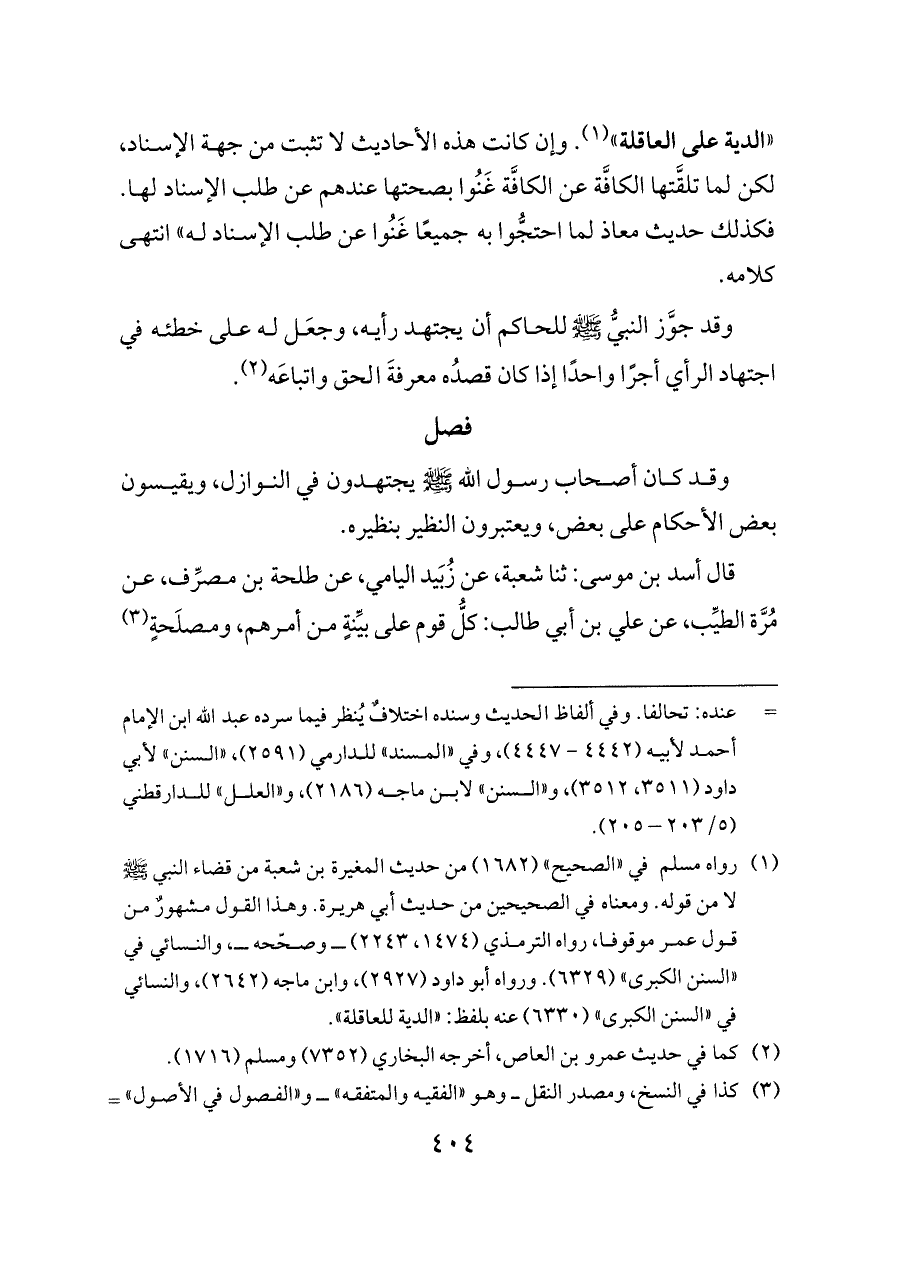 «الدية على العاقلة»(١). وإن كانت هذه الأحاديث لا تثبت من جهة الإسناد،
لكن لما تلقَّتها الكافَّة عن الكافَّة غَنُوا بصحتها عندهم عن طلب الإسناد لها.
فكذلك حديث معاذ لما احتجُّوا به جميعًا غَنُوا عن طلب الإسناد له» انتهى
كلامه.
وقد جوَّز النبيُّ ﷺ للحاكم أن يجتهد رأيه، وجعَل له على خطئه في
اجتهاد الرأي أجرًا واحدًا إذا كان قصدُه معرفةَ الحق واتباعَه(٢).
فصل
وقد كان أصحاب رسول الله ﷺ يجتهدون في النوازل، ويقيسون
بعض الأحكام على بعض، ويعتبرون النظير بنظيره.
قال أسد بن موسى: ثنا شعبة، عن زُبَيد اليامي، عن طلحة بن مصرِّف، عن
مُرَّة الطيِّب، عن علي بن أبي طالب: كلُّ قوم على بيِّنةٍ من أمرهم، ومصلَحةٍ(٣)
= عنده: تحالفا. وفي ألفاظ الحديث وسنده اختلافٌ يُنظر فيما سرده عبد الله ابن الإمام
أحمد لأبيه (٤٤٤٢ - ٤٤٤٧)، وفي «المسند» للدارمي (٢٥٩١)، «السنن» لأبي
داود (٣٥١١، ٣٥١٢)، و«السنن» لابن ماجه (٢١٨٦)، و«العلل» للدارقطني
(٥/ ٢٠٣ – ٢٠٥).
(١) رواه مسلم في «الصحيح» (١٦٨٢) من حديث المغيرة بن شعبة من قضاء النبي ﷺ
لا من قوله. ومعناه في الصحيحين من حديث أبي هريرة. وهذا القول مشهورٌ من
قول عمر موقوفا، رواه الترمذي (١٤٧٤، ٢٢٤٣) ــ وصحّحه ــ، والنسائي في
«السنن الكبرى» (٦٣٢٩). ورواه أبو داود (٢٩٢٧)، وابن ماجه (٢٦٤٢)، والنسائي
في «السنن الكبرى» (٦٣٣٠) عنه بلفظ: «الدية للعاقلة».
(٢) كما في حديث عمرو بن العاص، أخرجه البخاري (٧٣٥٢) ومسلم (١٧١٦).
(٣) كذا في النسخ، ومصدر النقل ــ وهو «الفقيه والمتفقه» ــ و«الفصول في الأصول» =
٤٠٤